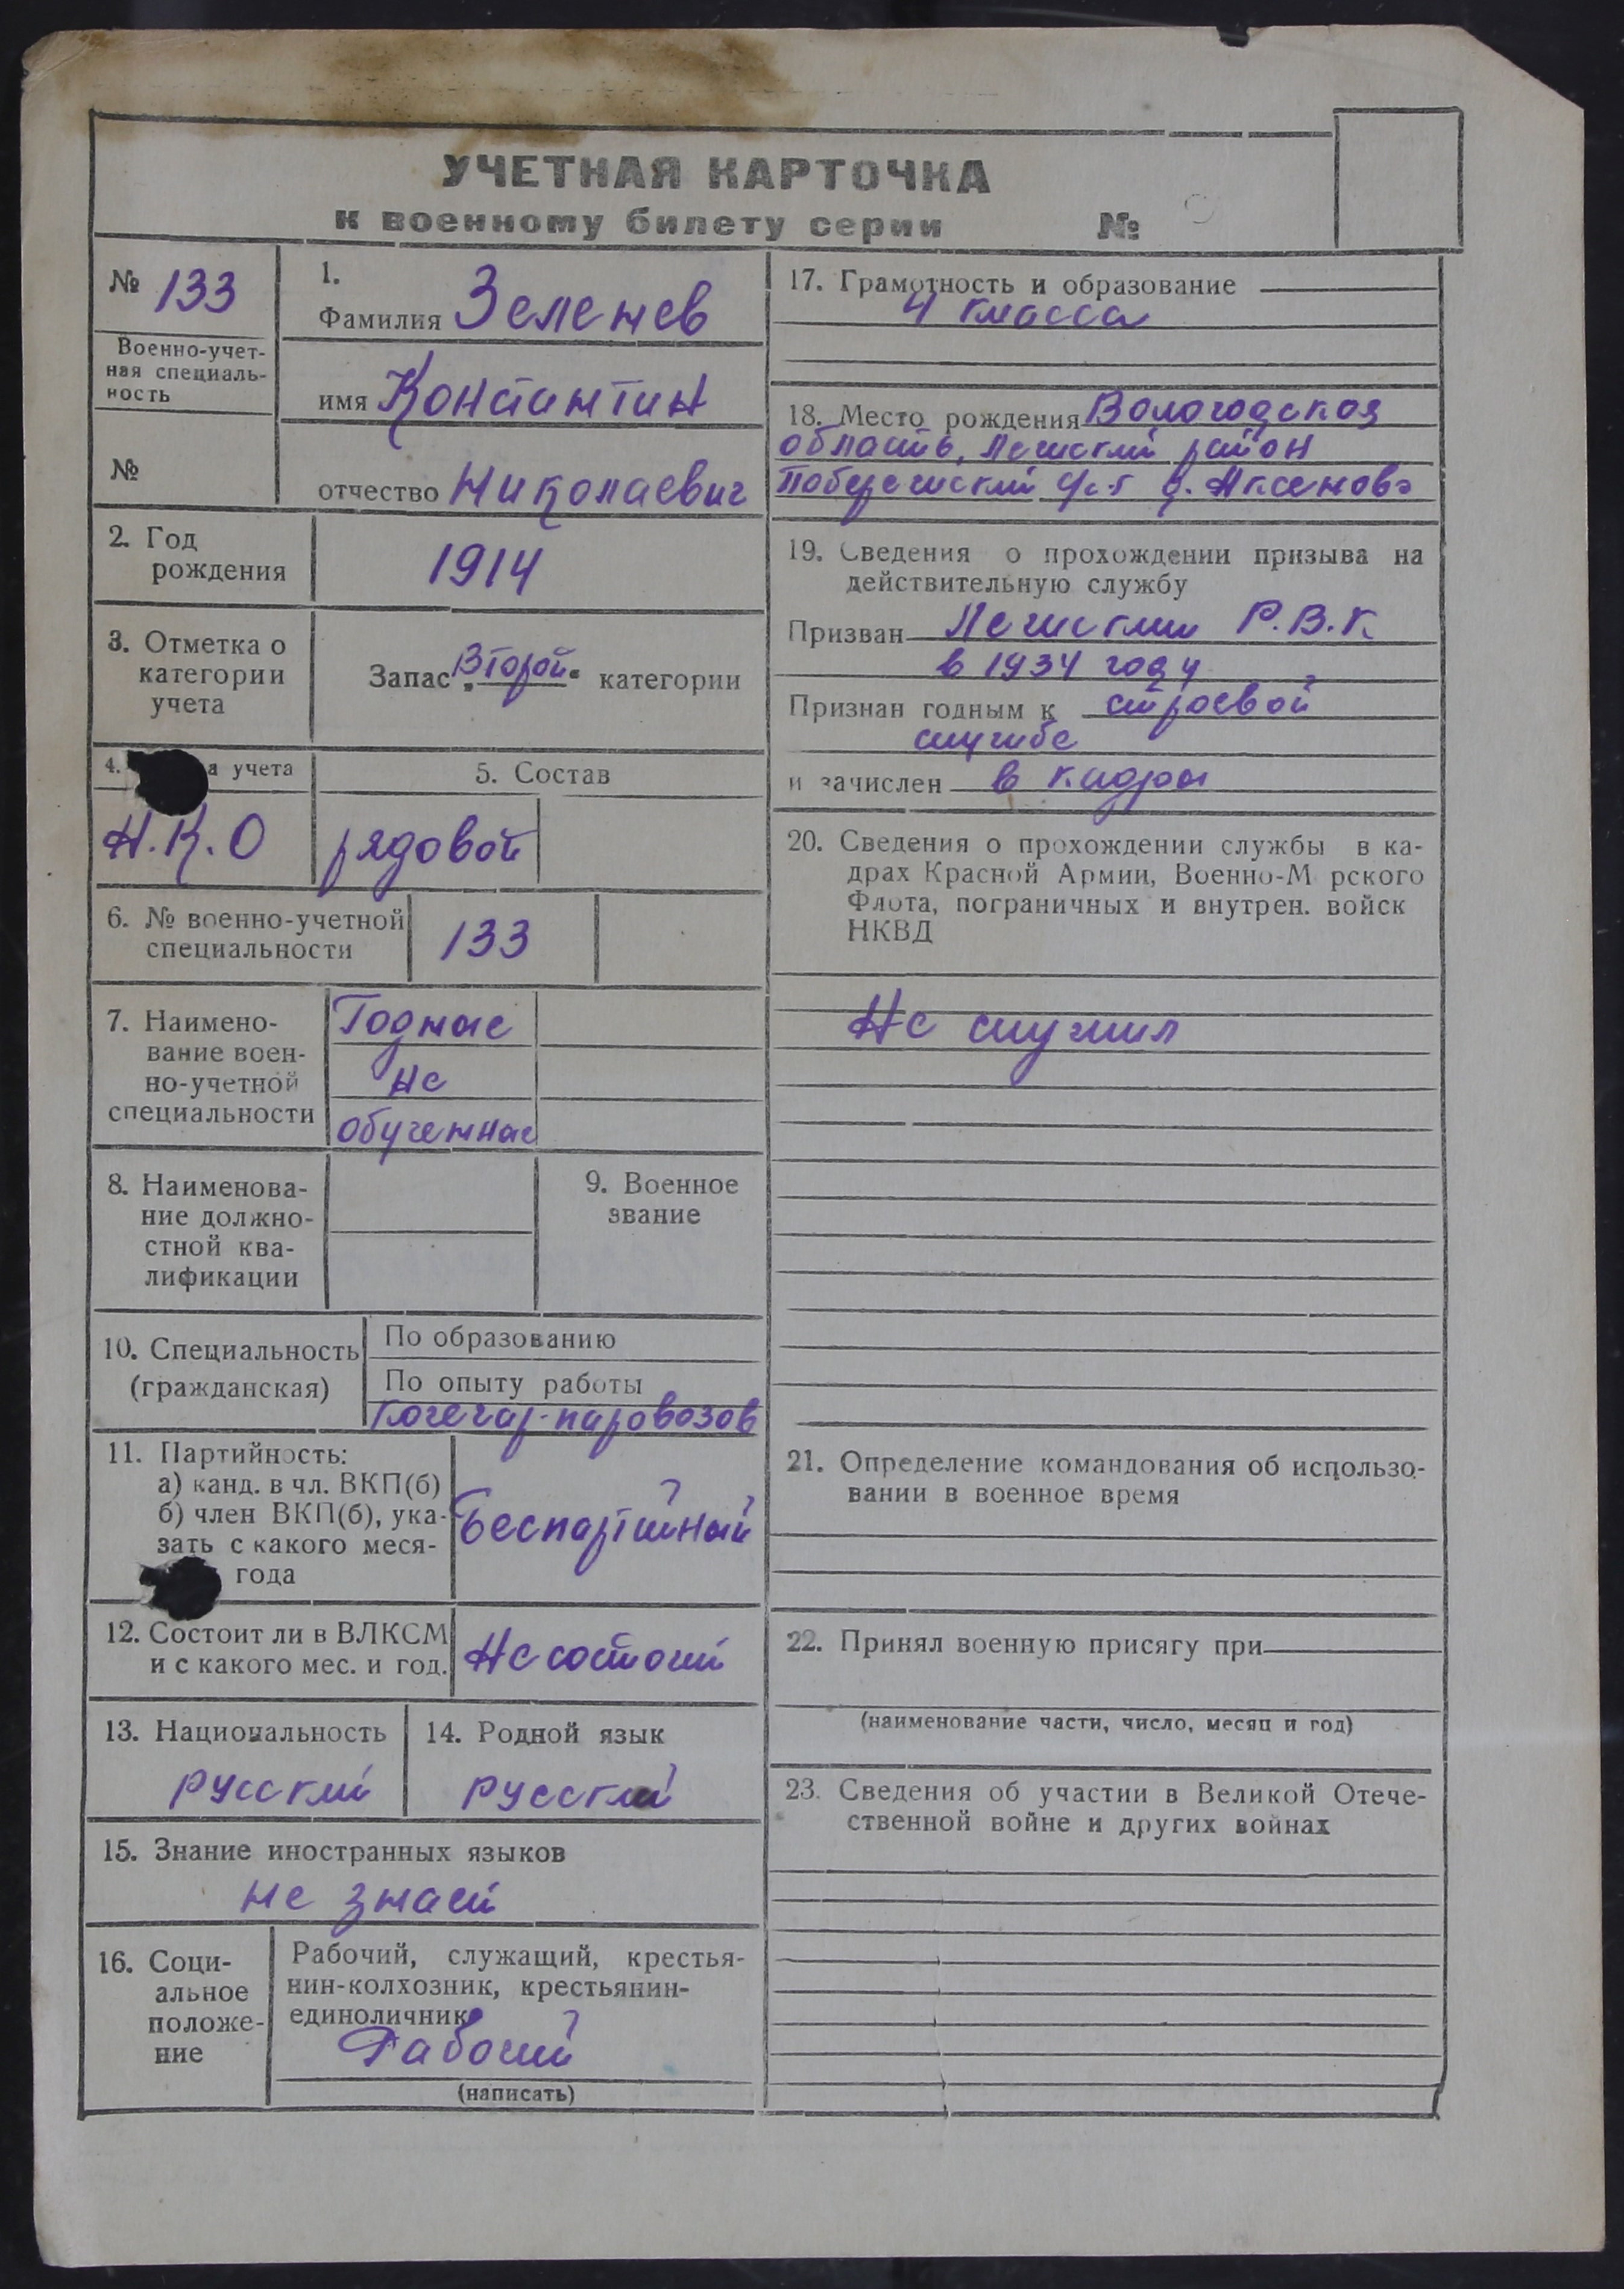 УЧЕТНАЯ КАРТОЧКА
к военному билету серии №
№ 133
Военно-учет-
ная специаль-
ность
№
1.
Фамилия Зеленев
имя Константин
отчество Николаевич
2. Год
рождения
1914
3. Отметка о
категории
учета
Запас „Второй“ категории
4. а учета
Н.К.О
5. Состав
рядовой
6. № военно-учетной
специальности
133
7. Наимено-
вание воен-
но-учетной
специальности
Годные
не
обученные
8. Наименова-
ние должно-
стной ква-
лификации
9. Военное
звание
10. Специальность
(гражданская)
По образованию
По опыту работы
Кочегар-паровозов
11. Партийность:
а) канд. в чл. ВКП(б)
б) член ВКП(б), ука-
зать с какого меся-
года
Беспартийный
12. Состоит ли в ВЛКСМ
и с какого мес. и год.
Не состоит
13. Национальность
русский
14. Родной язык
русский
15. Знание иностранных языков
не знает
16. Соци-
альное
положе-
ние
Рабочий, служащий, крестья-
нин-колхозник, крестьянин-
единоличник
Рабочий
(написать)
17. Грамотность и образование
4 класса
18. Место рождения Вологодская
область, район
с/с д. Аксеново
19. Сведения о прохождении призыва на
действительную службу
Призван Р.В.К
в 1934 году
Признан годным к строевой
службе
и зачислен в кадры
20. Сведения о прохождении службы в ка-
драх Красной Армии, Военно-М рского
Флота, пограничных и внутрен. войск
НКВД
Не служил
21. Определение командования об использо-
вании в военное время
22. Принял военную присягу при
(наименование части, число, месяц и год)
23. Сведения об участии в Великой Отече-
ственной войне и других войнах